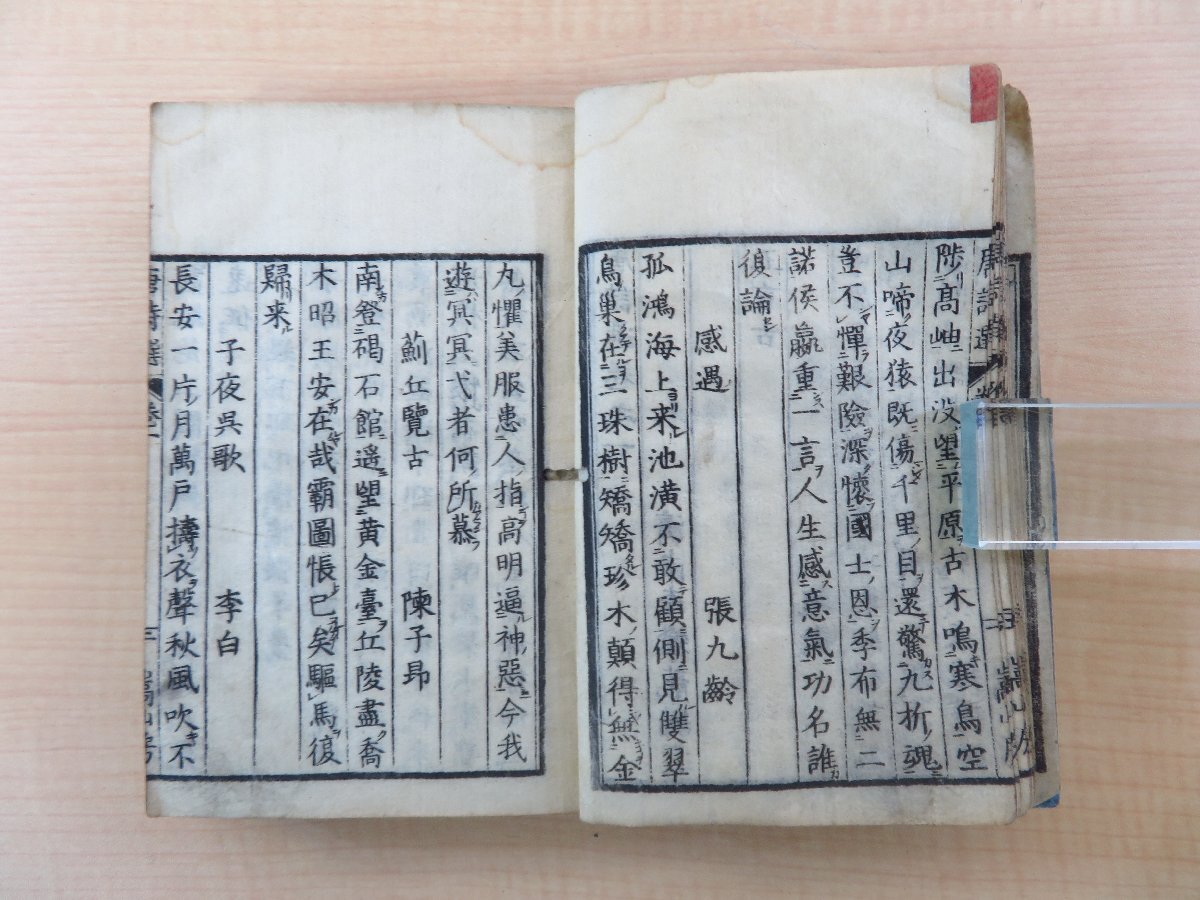 陟高岫出没望平原古木鳴寒鳥空
山啼夜猿既傷千里目還驚九折魂
豈不憚艱險深懷國士恩季布無二
諾侯嬴重一言人生感意氣功名誰
復論
感遇 張九齡
孤鴻海上来池潢不敢顧側見雙翠
鳥巢在三珠樹矯矯珍木顛得無金
丸懼美服患人指高明逼神惡今我
遊冥冥弋者何所慕
薊丘覽古 陳子昻
南登碣石館遥望黄金臺丘陵盡喬
木昭王安在哉霸圖悵已矣驅馬復
歸来
子夜吳歌 李白
長安一片月萬戸擣衣聲秋風吹不
唐詩選 卷一 三 嵩山房